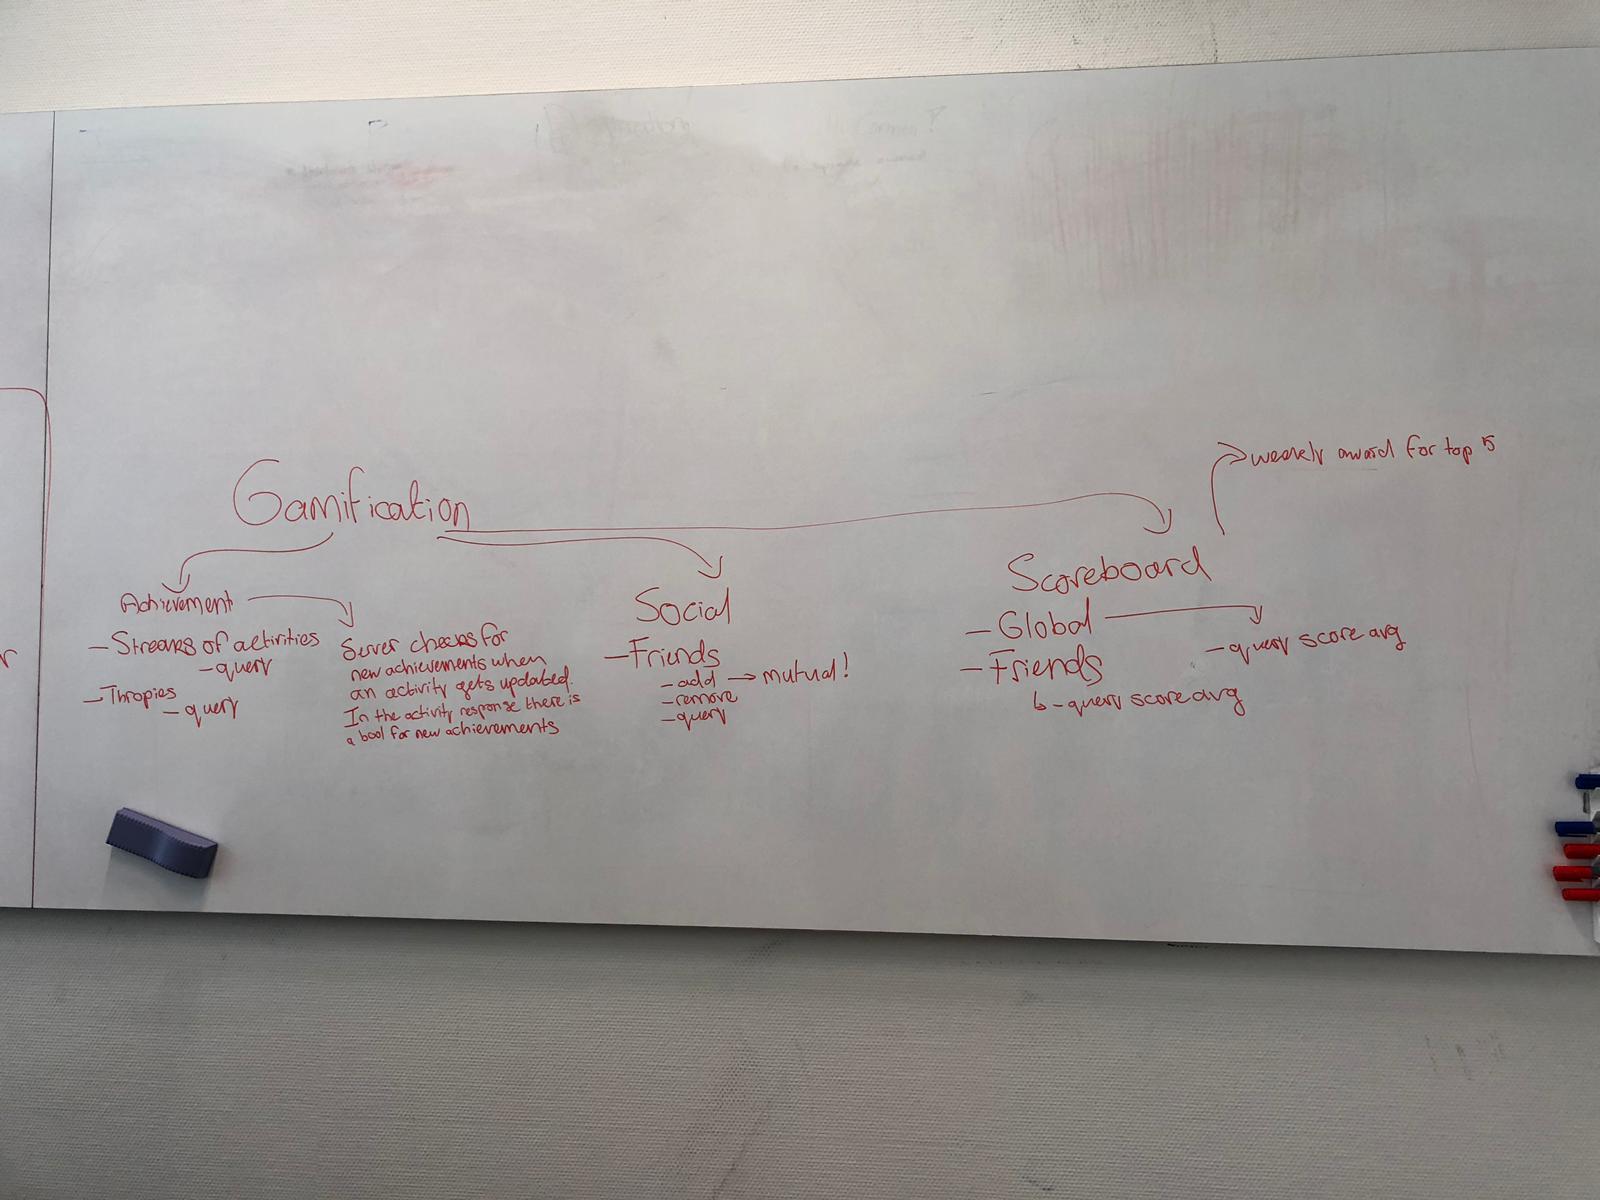 Gamification
Achievement
- Streaks of activities
- query
- Thropies
- query
Server checks for
new achievements when
an activity gets updated.
In the activity response there is
a bool for new achievements
Social
- Friends
- add → mutual!
- remove
- query
Scoreboard
weekly award for top 5
- Global
- query score avg
- Friends
- query score avg